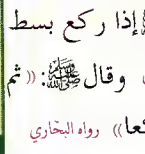 إذا ركع بسط
وقال ﷺ: ((ثم
عا)) رواه البخاري